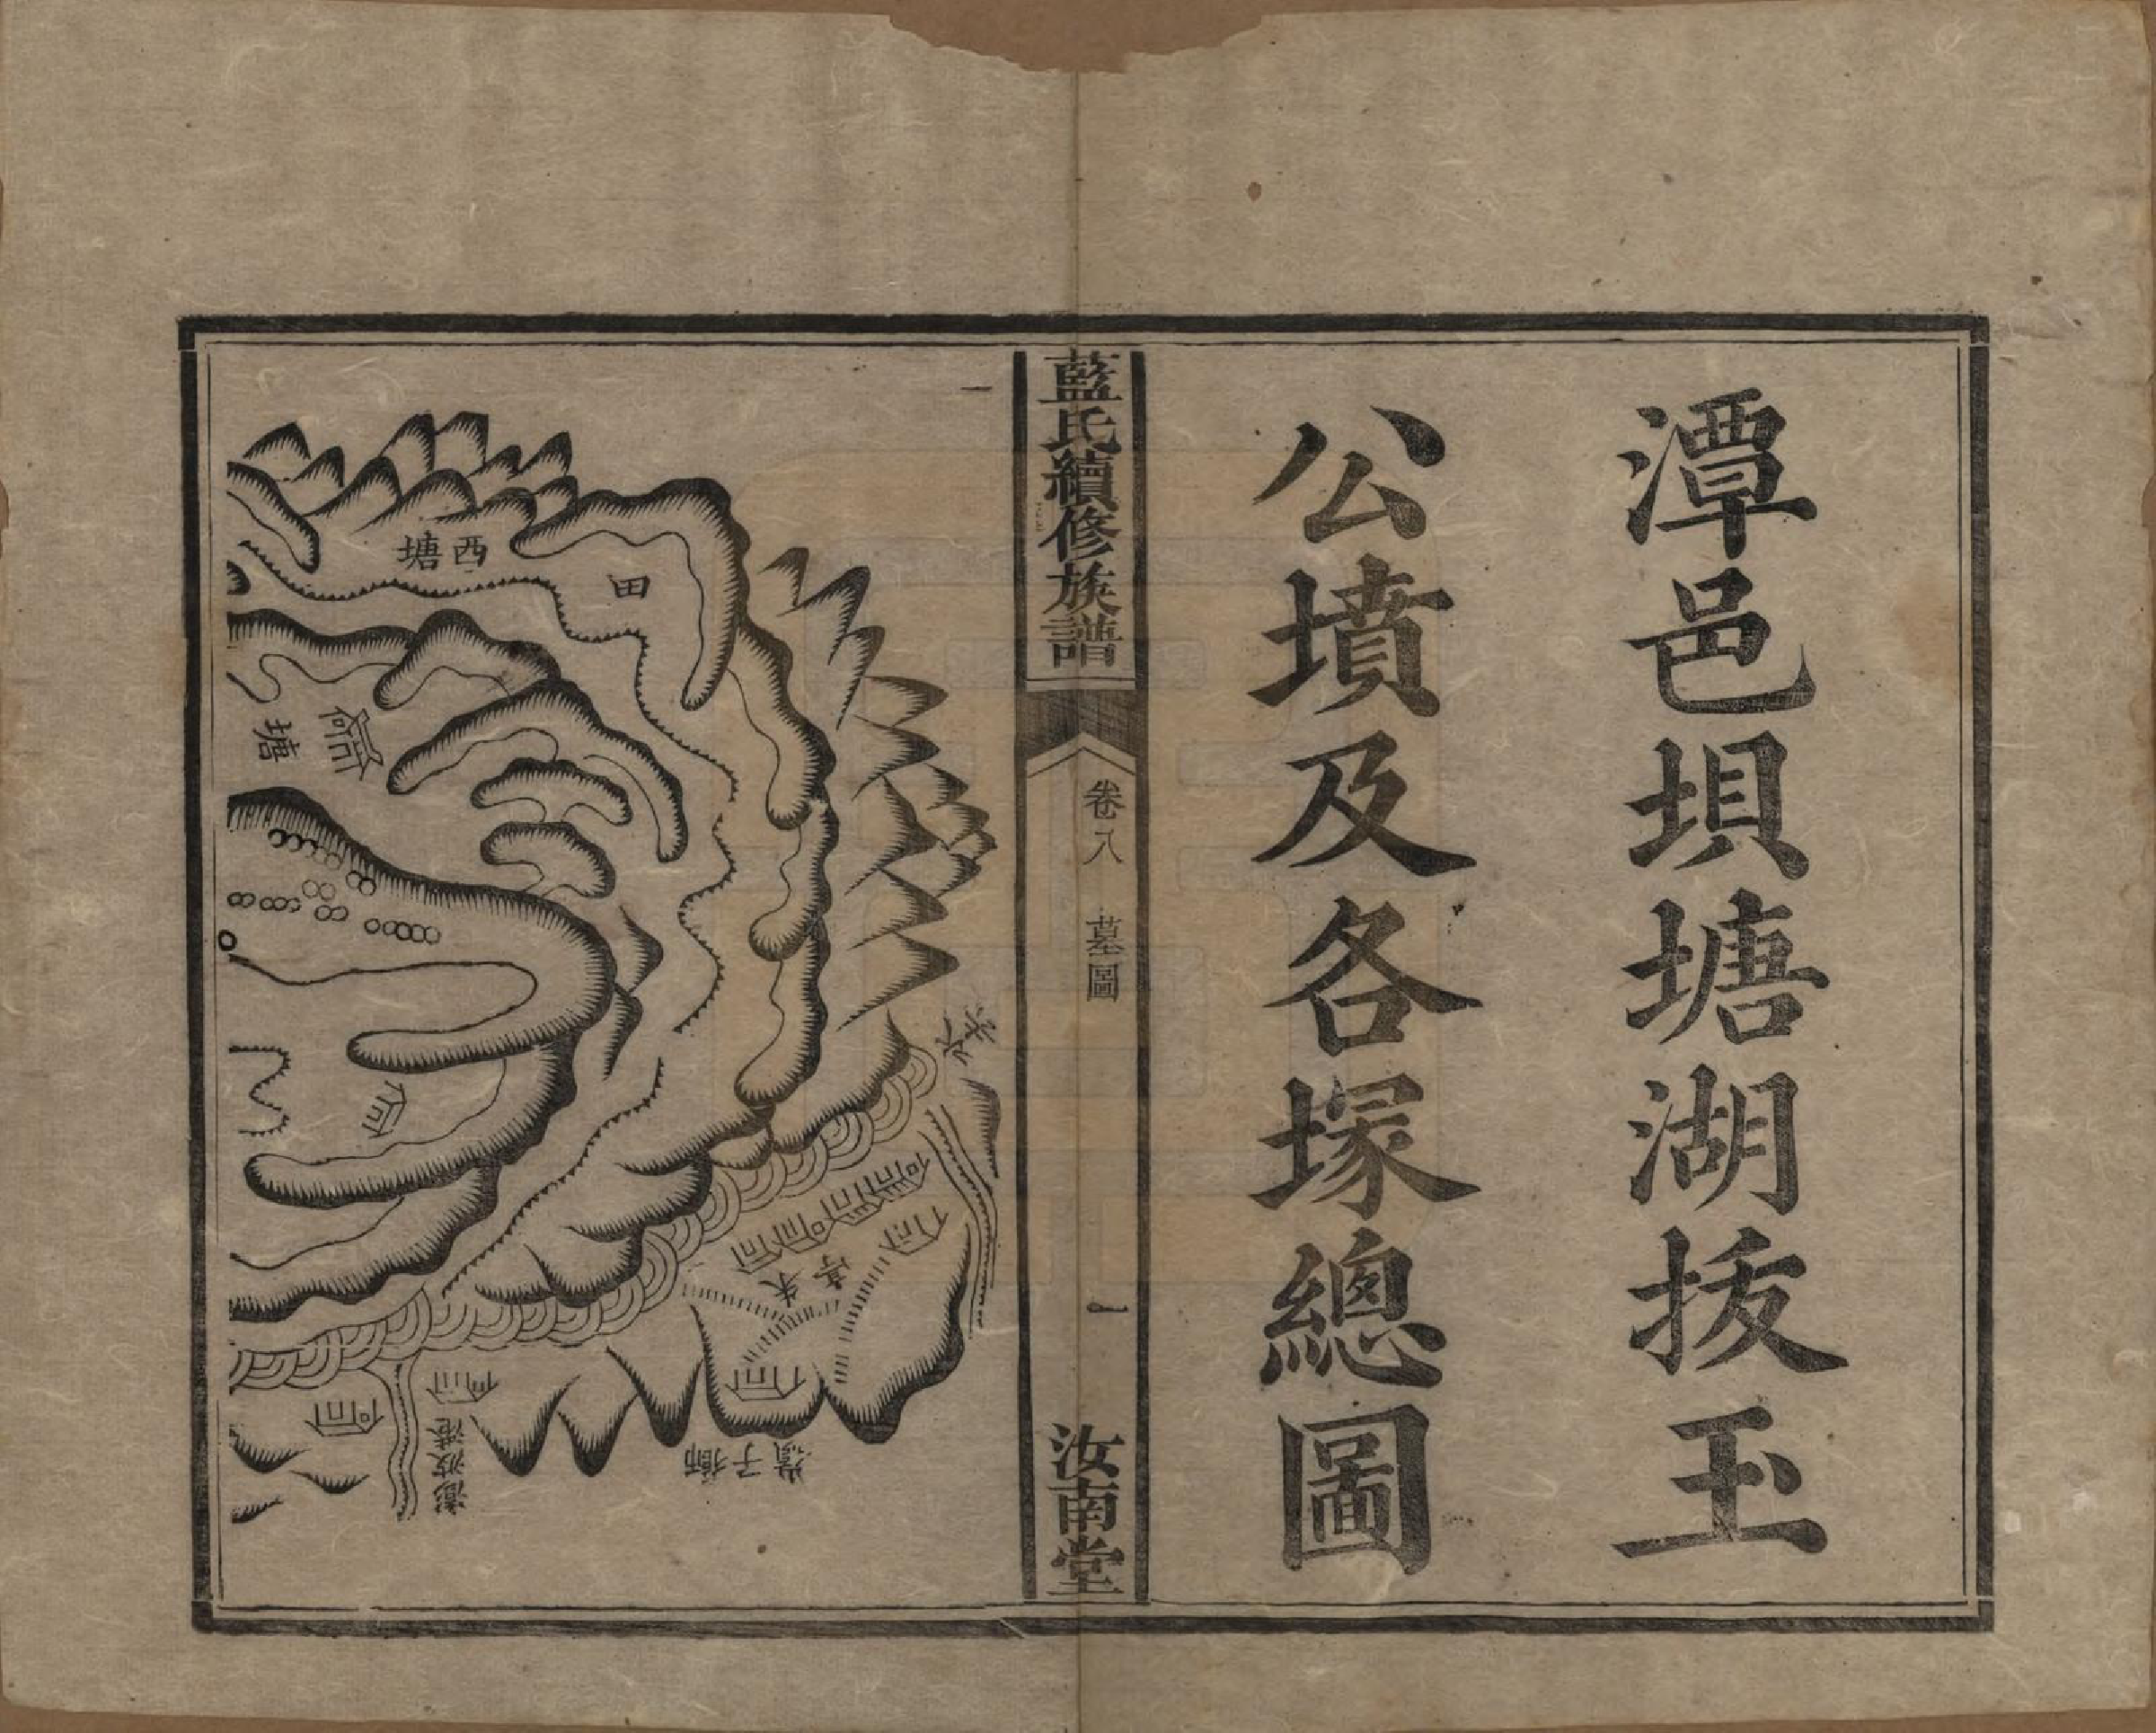 潭邑垻塘湖抜玉
公墳及各塚總圖
藍氏續修族譜
卷八 墓圖
一
汝南堂
一
田
西塘
塘
朱亭
獅子嶺
澎波港